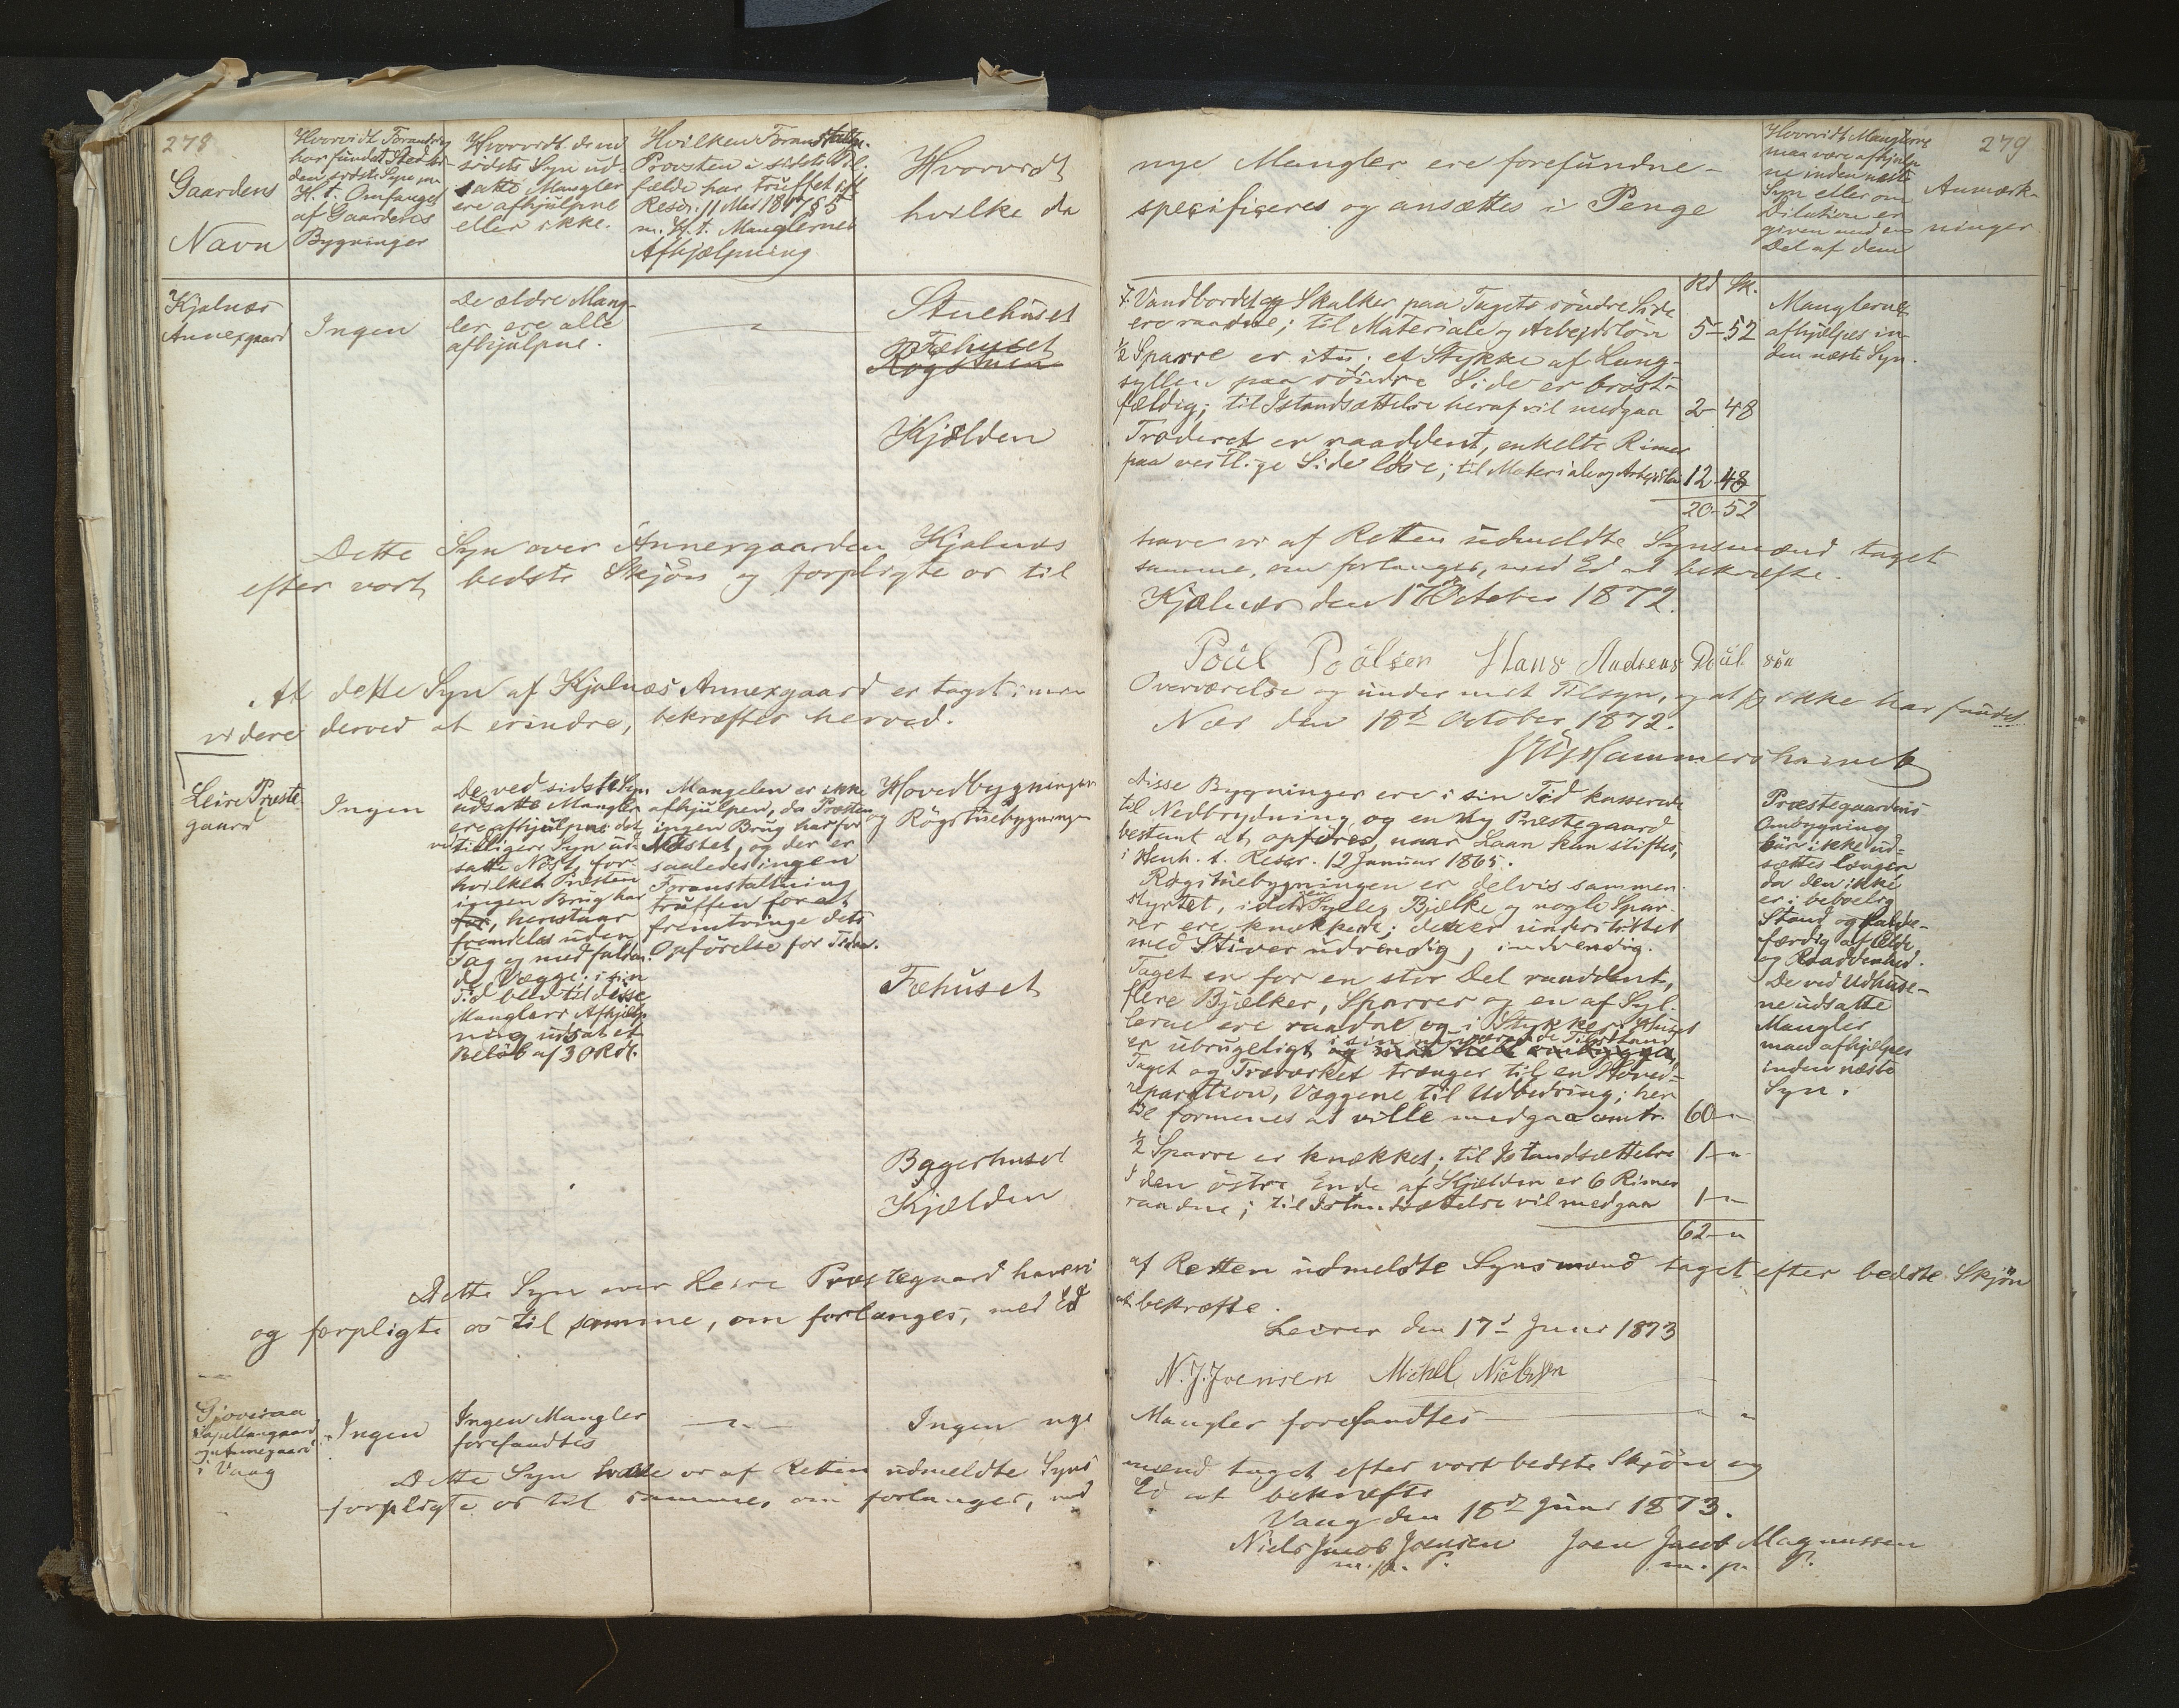 278
Gaardens
Navn
Hvorvidt Forandring
har fundet Sted siden
den sidste Syn m
H. t. Omfanget
af Gaardens
Bygninger
Hvorvidt de ved
sidste Syn ud-
satte Mangler
ere afhjulpne
eller ikke.
Hvilken Foranstaltn.
Provsten i sidste Til-
fælde har truffet ift
Rescr. 11 Mai 1817 § 5
m. H. t. Manglernes
Afhjælpning
Hvorvidt
hvilke da
nye Mangler ere forefundne –
specificeres og ansættes i Penge
Hvorvidt Manglerne
maa være afhjulp
ne inden næste
Syn eller om
Dilation er
given med en
Del af dem
279
Anmærk-
ninger
Kjalnæs
Annexgaard
Ingen
De ældre Mang-
ler ere alle
afhjulpne.
Stuehuset
Fæhuset
Røgstuen
Kjølden
Rd Sk.
Vandbordet og Skalker paa Tagets søndre Side
ere raadne; til Materiale og Arbejdsløn 5 – 52
½ Sparre er itu; et Stykke af Lang-
syllen paa søndre Side er brøst-
fældig; til Istandsættelse heraf vil medgaa 2 – 48
Træderet er raaddent, enkelte Rimer
paa vestlige Side løse; til Materiale og Arbejdsløn 12 – 48
20 – 52
Manglerne
afhjælpes in-
den næste Syn.
Dette Syn over Annexgaarden Kjalnæs
efter vort bedste Skjøn og forpligte os til
have vi af Retten udmeldte Synsmænd taget
samme, om forlanges, med Ed at bekræfte.
Kjælnæs den 17d October 1872.
Poül Poülsen Hans Andreas Poül søn
At dette Syn af Kjalnæs Annexgaard er taget i min
videre derved at erindre, bekræftes herved.
Overværelse og under mit Tilsyn, og at jeg ikke har fundet
Næs den 18d October 1872.
Hammershaimb
Leire Præste
gaard
Ingen
De ved sidste Syn
udsatte Mangler
ere afhjulpne; det
ved tidligere Syn ud-
satte Nøst, for
hvilket Præsten
ingen Brug har
for, henstaar
fremdeles uden
Tag og nedfalden-
de Vægge; i sin
Tid blev til disse
Manglers Afhjælp-
ning udsat et
Beløb af 30 Rdl.
Mangelen er ikke
afhjulpen, da Præsten
ingen Brug har for
Nøstet, og der er
saaledes ingen
Foranstaltning
truffen for at
fremtvinge dets
Opførelse for Tiden.
Hovedbygningen
og Røgstuebygningen
Fæhuset
Byggerhuset
Kjælden
Disse Bygninger ere i sin Tid kasserede
til Nedbrydning og en ny Præstegaard
bestemt at opføres, naar Laan kan stiftes,
i Henh. t. Rescr. 12 Januar 1865.
Røgstuebygningen er delvis sammen-
styrtet, idet en Sylle, Bjelke og nogle Spar-
rer ere knækkede; den er understøttet
med Stiver udvendig, indvendig.
Taget er for en stor Del raaddent,
flere Bjælker, Sparrer og en af Syl-
lerne ere raadne og i Stykker; Huset
er ubrugeligt i sin nuværende Tilstand og maa helt ombygges,
Taget og Træværket trænger til en Hoved-
reparation, Væggene til Udbedring; her
til formenes at ville medgaa omtr. 60 –
½ Sparre er knækket; til Istandsættelse 1 –
I den østre Ende af Kjælden er 6 Rimer
raadne; til Istandsættelse vil medgaa 1 –
62 –
Præstegaardens
Ombygning
bør ikke ud-
sættes længer
da den ikke
er i beboelig
Stand og falde-
færdig af Ælde
og Raaddenhed.
De ved Udhuse-
ne udsatte
Mangler
maa afhjælpes
inden næste
Syn.
Dette Syn over Leire Præstegaard have vi
og forpligte os til samme, om forlanges, med Ed
af Retten udmeldte Synsmænd taget efter bedste Skjøn
at bekræfte.
Leirer den 17d Juni 1873
N. J. Joensen Michel Nielsen
Gjoveraa
Capellangaard
og Annexgaard
i Vaag
Ingen
Ingen Mangler
forefandtes
Ingen nye
Mangler forefandtes
Dette Syn have vi af Retten udmeldte Syns
forpligte os til samme, om forlanges, med
mænd taget efter vort bedste Skjøn og
Ed at bekræfte
Vaag den 18d Juni 1873.
Niels Jacob Joensen Joen Jacob Magnussen
m. p. P. m. p. P.